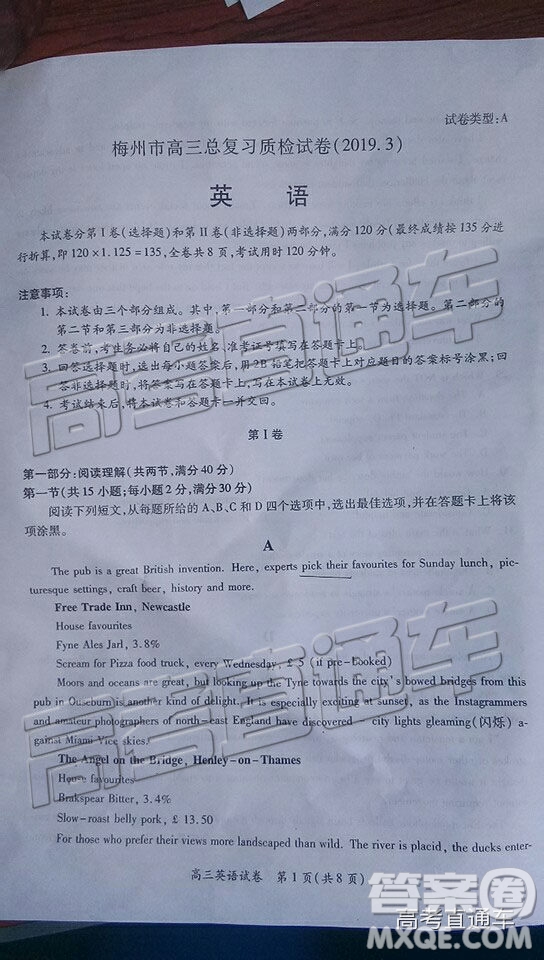 试卷类型:A
梅州市高三总复习质检试卷(2019.3)
英 语
本试卷分第I卷(选择题)和第II卷(非选择题)两部分,满分120分(最终成绩按135分进
行折算,即120×1.125=135,全卷共8页,考试用时120分钟。
注意事项:
1. 本试卷由三个部分组成。其中,第一部分和第二部分的第一节为选择题。第二部分的
第二节和第三部分为非选择题。
2. 答卷前,考生务必将自己的姓名、准考证号填写在答题卡上。
3. 回答选择题时,选出每小题答案后,用2B铅笔把答题卡上对应题目的答案标号涂黑;回
答非选择题时,将答案写在答题卡上,写在本试卷上无效。
4. 考试结束后,将本试卷和答题卡一并交回。
第I卷
第一部分:阅读理解(共两节,满分40分)
第一节(共15小题;每小题2分,满分30分)
阅读下列短文,从每题所给的A、B、C和D四个选项中,选出最佳选项,并在答题卡上将该
项涂黑。
A
The pub is a great British invention. Here, experts pick their favourites for Sunday lunch, pic-
turesque settings, craft beer, history and more.
Free Trade Inn, Newcastle
House favourites
Fyne Ales Jarl, 3.8%
Scream for Pizza food truck, every Wednesday, £5 (if pre-booked)
Moors and oceans are great, but looking up the Tyne towards the city's bowed bridges from this
pub in Ouseburn is another kind of delight. It is especially exciting at sunset, as the Instagrammers
and amateur photographers of north-east England have discovered – city lights gleaming(闪烁) a-
gainst Miami Vice skies.
The Angel on the Bridge, Henley-on-Thames
House favourites
Brakspear Bitter, 3.4%
Slow-roast belly pork, £13.50
For those who prefer their views more landscaped than wild. The river is placid, the ducks enter-
高三英语试卷 第1页(共8页)
高考直通车
答案圈
高考直通车
MXQE.COM